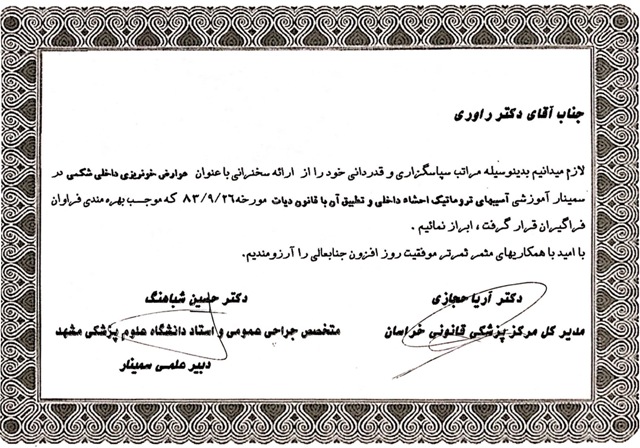 جناب آقای دکتر راوری
لازم میدانیم بدینوسیله مراتب سپاسگزاری و قدردانی خود را از ارائه سخنرانی با عنوان عوارض خونریزی داخلی شکمی در
سمینار آموزشی آسیبهای تروماتیک احشاء داخلی و تطبیق آن با قانون دیات مورخه ۸۳/۹/۲۶ که موجب بهره مندی فراوان
فراگیران قرار گرفت ، ابراز نمائیم .
با امید با همکاریهای مثمر ثمرتر موفقیت روز افزون جنابعالی را آرزومندیم.
دکتر آریا حجازی
مدیر کل مرکز پزشکی قانونی خراسان
دکتر حسین شباهنگ
متخصص جراحی عمومی و استاد دانشگاه علوم پزشکی مشهد
دبیر علمی سمینار